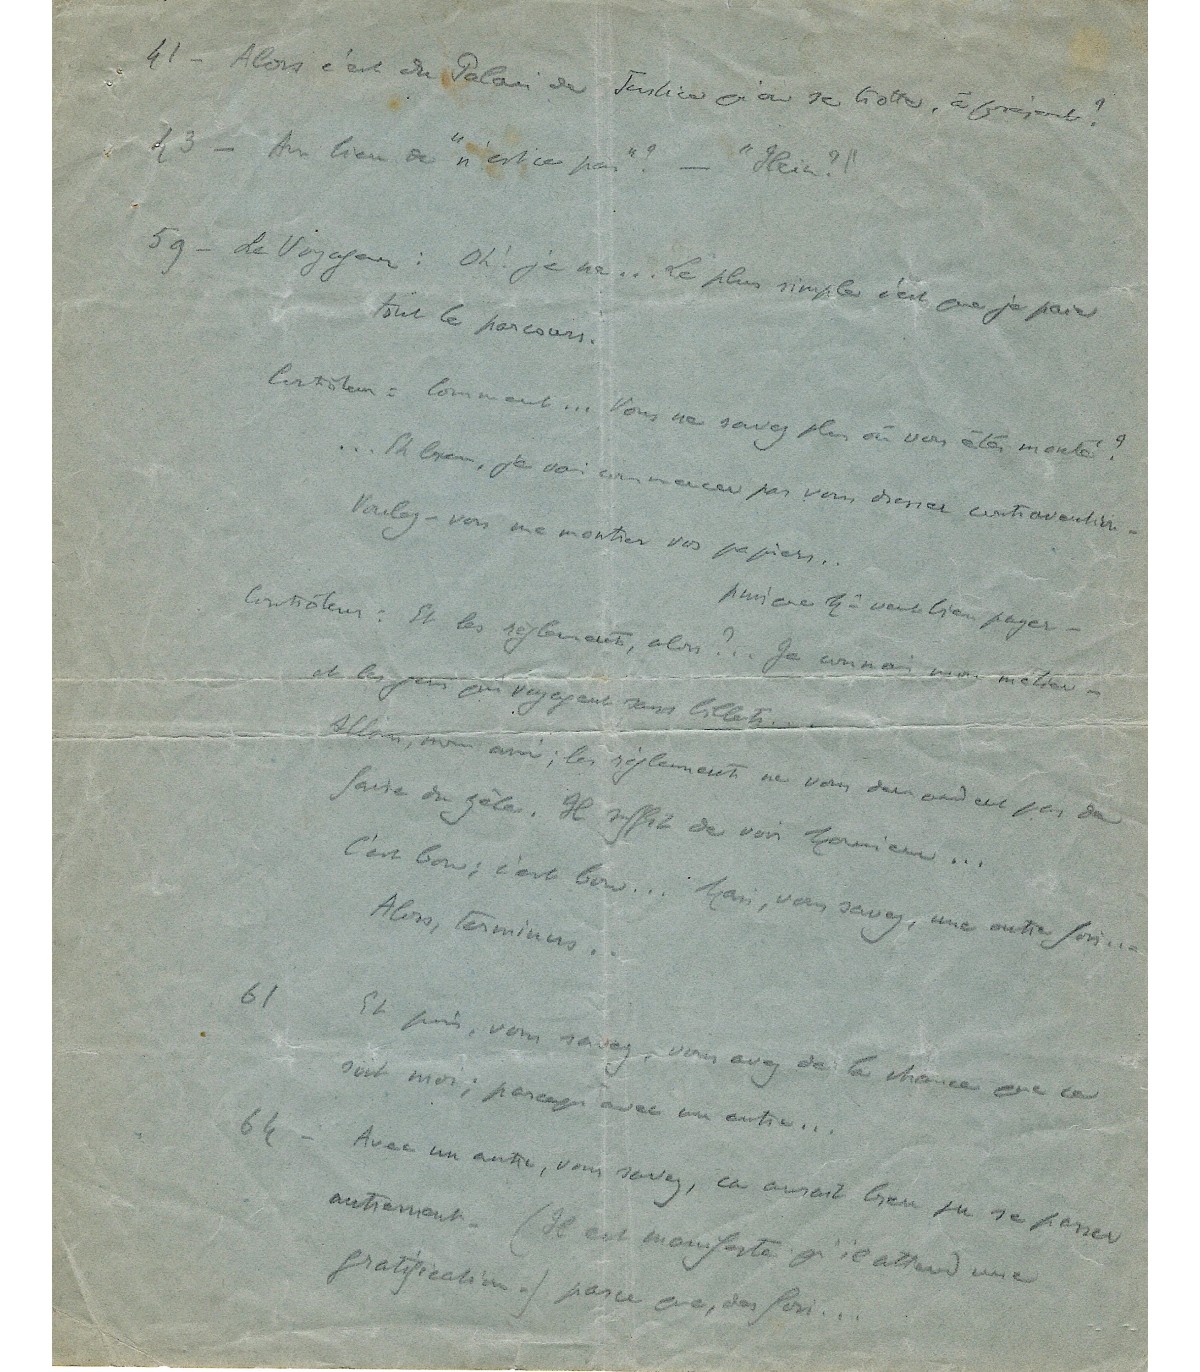 41 - Alors c'est du Palais de Justice qu'on se trotte, à présent ?
43 - Au lieu de "n'est-ce pas" ? — "Hein ?!
59 - Le Voyageur : Oh ! je ne... Le plus simple c'est que je paie
tout le parcours.
Contrôleur : Comment... Vous ne savez plus où vous êtes monté ?
... Eh bien, je vais commencer par vous dresser contravention -
Voulez-vous me montrer vos papiers..
puisque M. veut bien payer -
Contrôleur : Et les règlements, alors ?.. Je connais mon métier -
et les gens qui voyagent sans billets...
Allons, mon ami ; les règlements ne vous demandent pas de
faire du zèle. Il suffit de voir Monsieur...
C'est bon ; c'est bon... Mais, vous savez, une autre fois...
Alors, Terminus...
61 Et puis, vous savez, vous avez de la chance que ce
soit moi ; parce qu'avec un autre...
64 - Avec un autre, vous savez, ça aurait bien pu se passer
autrement - (Il est manifeste qu'il attend une
gratification.) parce que, des fois...